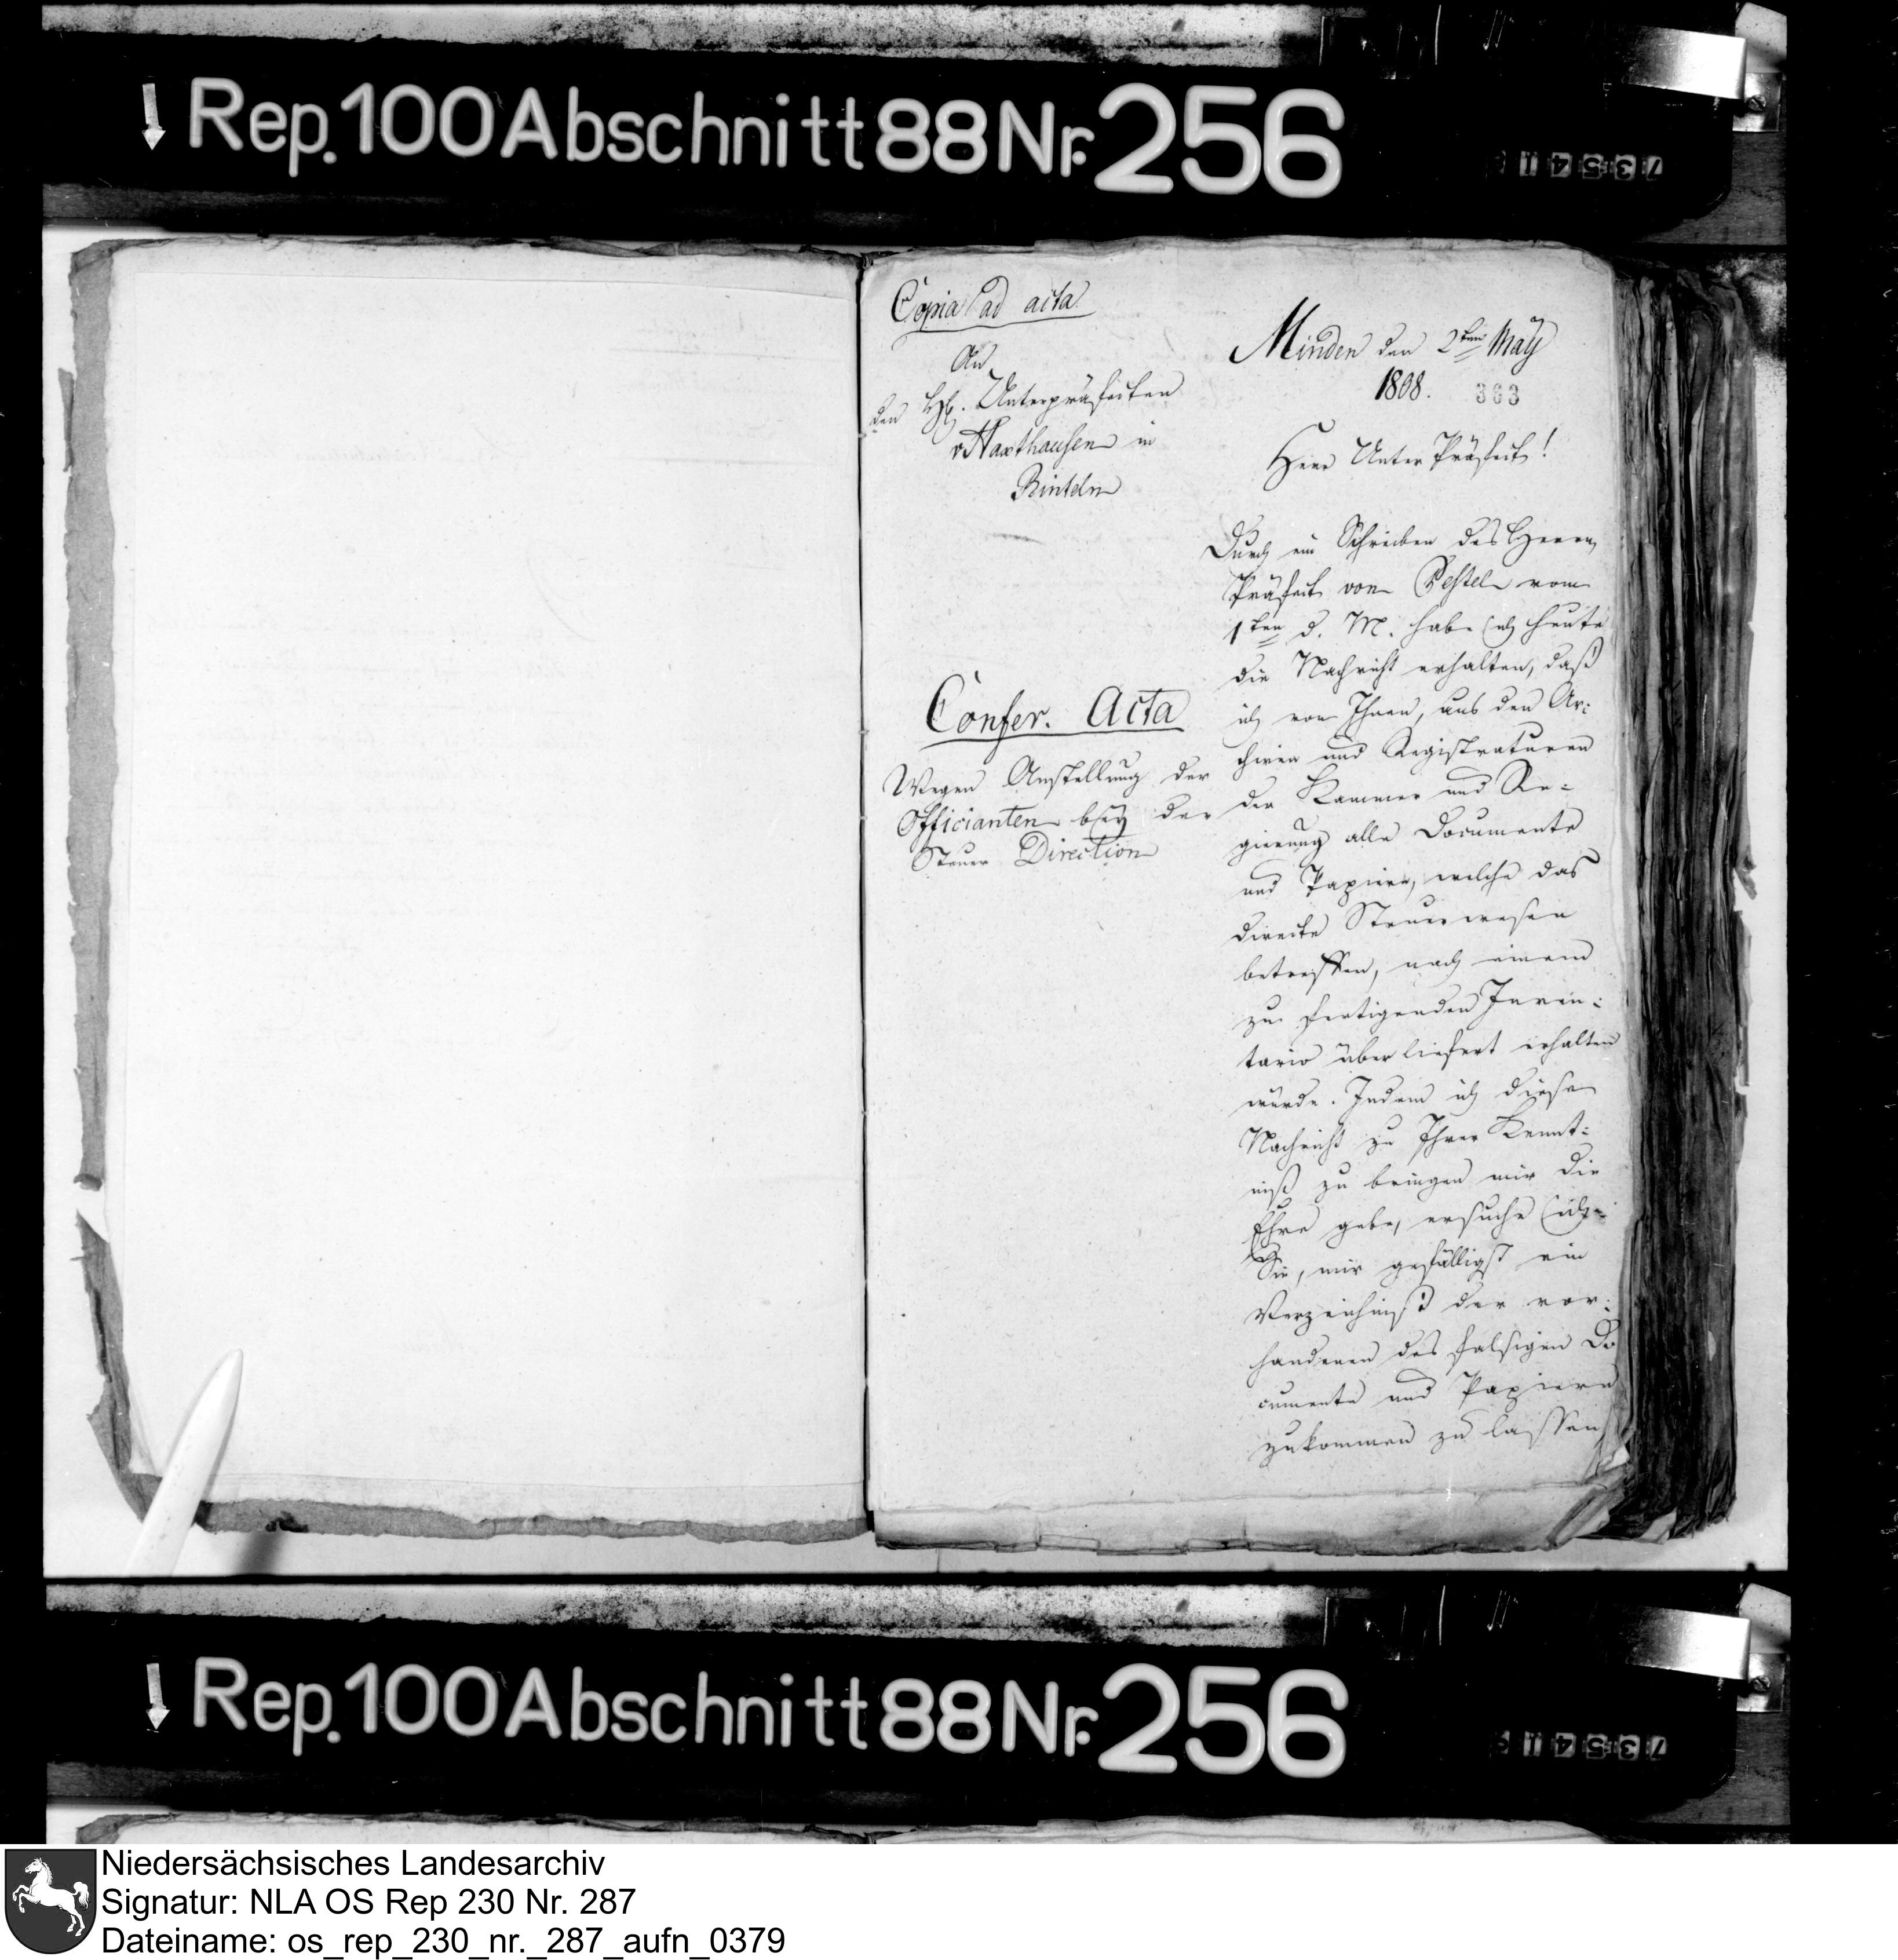 Rep. 100 Abschnitt 88 Nr. 256
Copia ad acta
An
den H. Unterpräfecten
v Haxthausen in
Rinteln
Minden den 2ten May
1808.
363
Herr Unter Präfect!
Confer. Acta
Wegen Anstellung der
Officianten bey der
Steuer Direction
Durch ein Schreiben des Herrn
Präfect von Pestel vom
1ten d. M. habe ich heute
die Nachricht erhalten, daß
ich von Ihnen, aus den Ar:
chiven und Registraturen
der Kammer und Re:
gierung alle Documente
und Papiere, welche das
directe Steuerwesen
betreffen, nach einem
zu fertigenden Inven:
tario überliefert erhalten
würde. Indem ich diese
Nachricht zu Ihrer Kennt:
niß zu bringen mir die
Ehre gebe, ersuche ich
Sie, mir gefälligst ein
Verzeichniß der vor:
handenen des falsigen Do
cumente und Papiere
zukommen zu lassen
Rep. 100 Abschnitt 88 Nr. 256
Niedersächsisches Landesarchiv
Signatur: NLA OS Rep 230 Nr. 287
Dateiname: os_rep_230_nr._287_aufn_0379